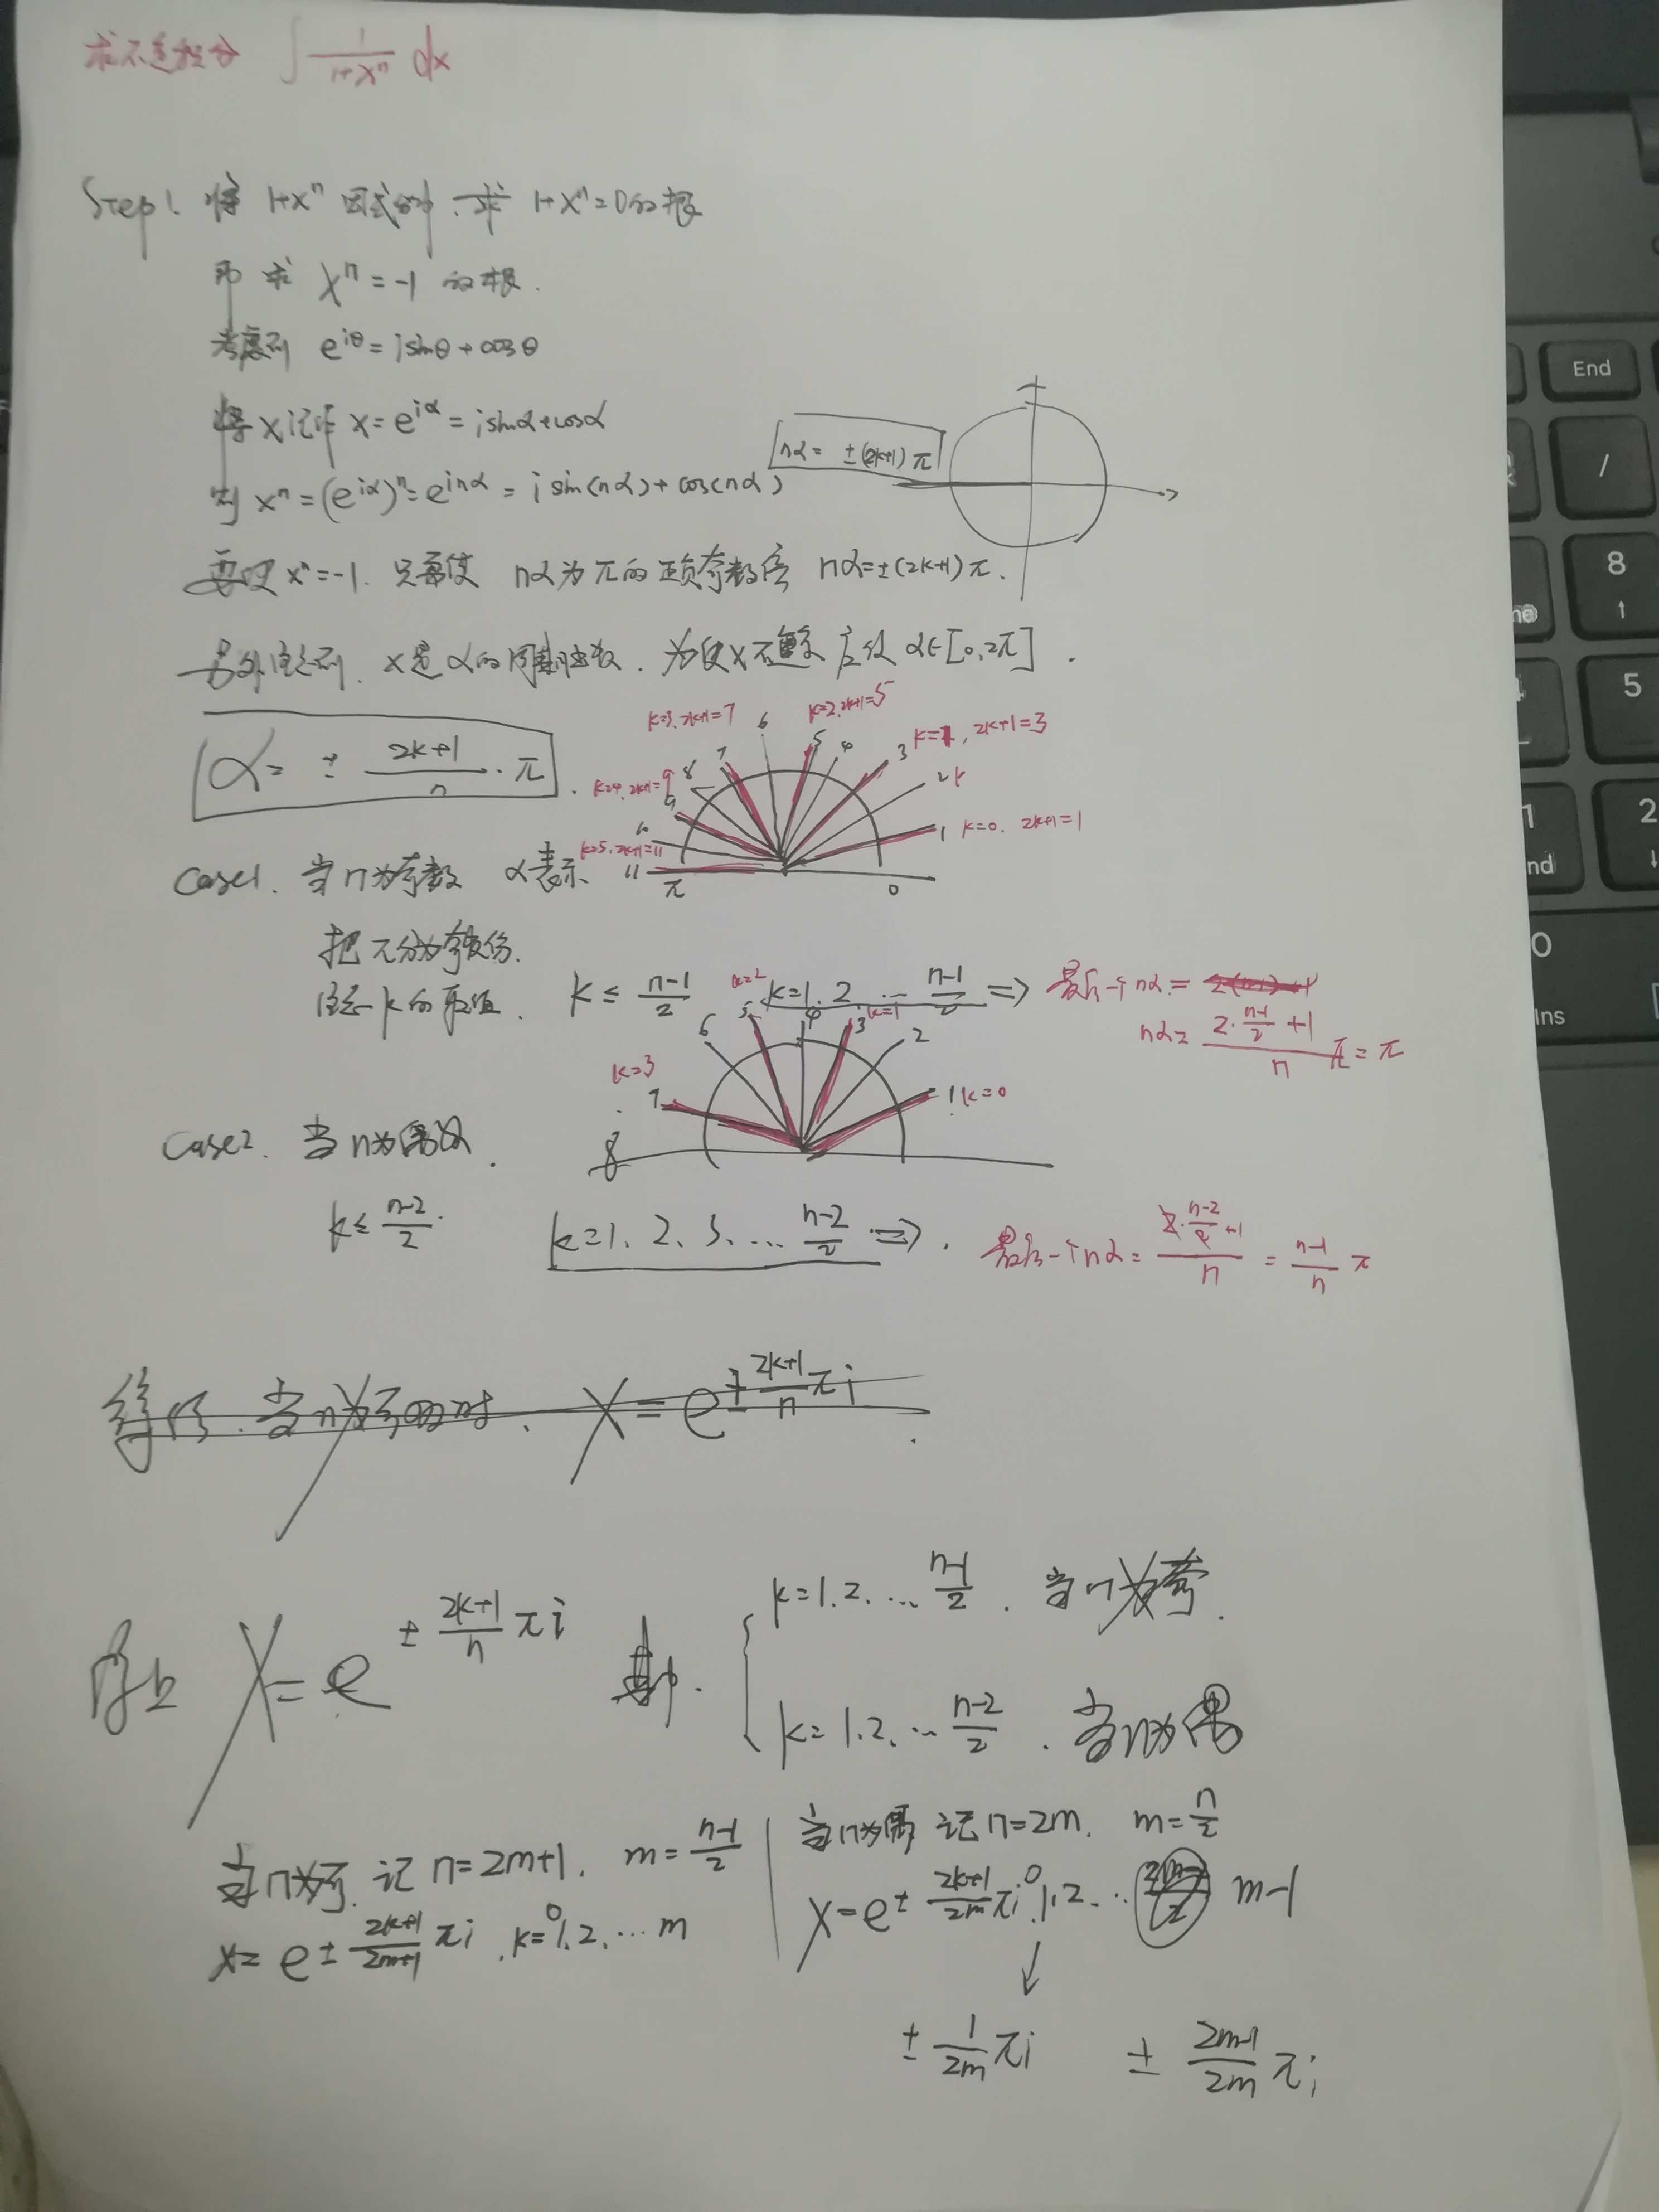 求不定积分 ∫ 1/(1+xⁿ) dx
Step1. 将 1+xⁿ 因式分解. 求 1+xⁿ=0 的根
即求 xⁿ=-1 的根.
考虑到 e^{iθ}=isinθ+cosθ
将x记作 x=e^{iα}=isinα+cosα
nα= ±(2k+1)π
则 xⁿ=(e^{iα})ⁿ=e^{inα}=i sin(nα)+cos(nα)
要使 xⁿ=-1. 只需使 nα为π的正负奇数倍 nα=±(2k+1)π.
另外注意到. x是α的周期函数. 为使x不重复 α∈[0,2π].
α= ± (2k+1)/n · π.
k=3, 2k+1=7 6 k=2, 2k+1=5
7 5 4 3 k=1, 2k+1=3
k=4, 2k+1=9 8 2
9
10 1 k=0. 2k+1=1
k=5, 2k+1=11
11 π 0
Case1. 当n为奇数 α表示
把π分为奇数份.
注意k的取值. k≤ (n-1)/2 k=1.2. … (n-1)/2 ⇒ 最后一个nα=
nα= (2·(n-1)/2+1)/n π=π
k=2 5 4 3 k=1
6 2
k=3
7 1 k=0
8
Case2. 当n为偶数.
k≤ (n-2)/2. k=1. 2. 3. … (n-2)/2 ⇒. 最后一个nα= (2·(n-2)/2+1)/n = (n-1)/n π
当n为奇数时. x=e^{± (2k+1)/n πi}.
x=e^{± (2k+1)/n πi} 其中.
k=1.2. … (n-1)/2. 当n为奇.
k=1.2. … (n-2)/2. 当n为偶
当n为奇. 记n=2m+1. m=(n-1)/2
x=e^{± (2k+1)/(2m+1) πi}, k=0 1.2. … m
当n为偶 记n=2m. m=n/2
x=e^{± (2k+1)/2m πi}. 0 1.2. … m-1
↓
± 1/2m πi ± (2m-1)/2m πi
End
/
8
↑
5
2
↓
0
Ins